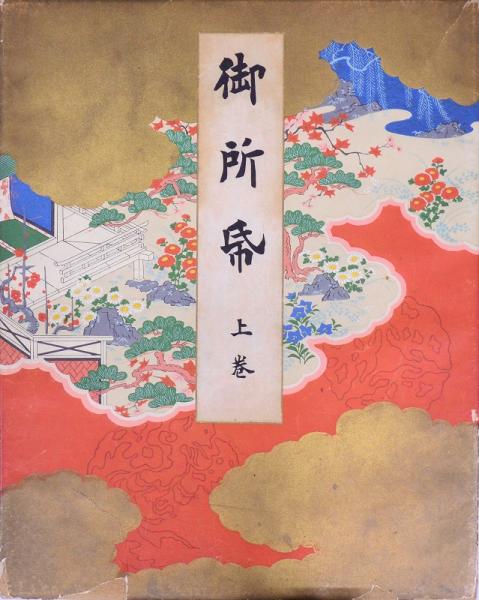 御所帋
上巻